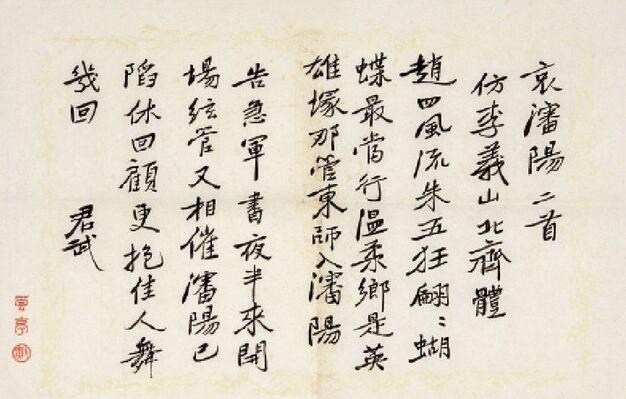 哀瀋陽二首
仿李義山北齊體
趙四風流朱五狂翩〻蝴
蝶最當行溫柔鄉是英
雄塚那管東師入瀋陽
告急軍書夜半來開
場絃管又相催瀋陽已
陷休回顧更抱佳人舞
幾回
君武